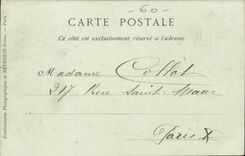 60
CARTE POSTALE
Ce côté est exclusivement réservé à l'adresse
Madame Collot
217 Rue Saint-Maur
Paris X
Etablissements Photographiques de NEURDEIN Frères. - Paris